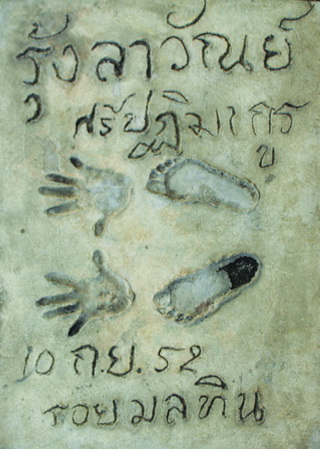 รุ้งลาวัณย์
ศรีปฏิมากูร
10 ก.ย. 52
รอยมลทิน